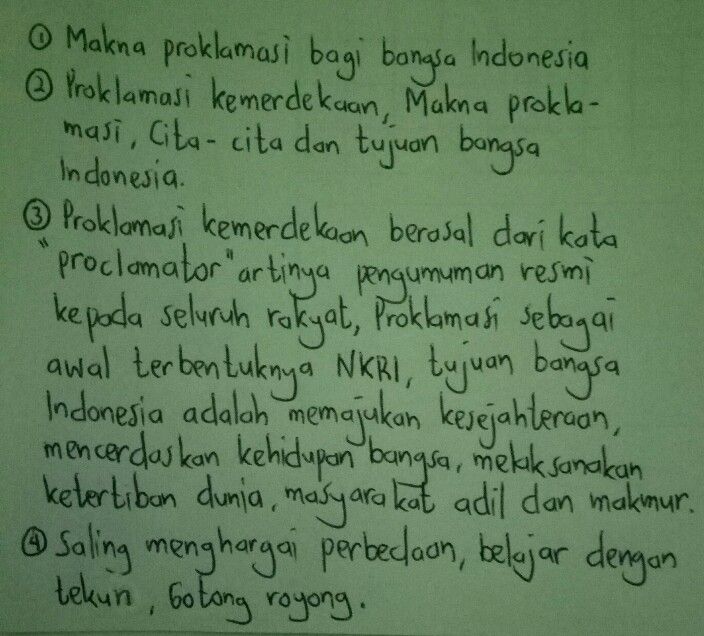 ① Makna proklamasi bagi bangsa Indonesia
② Proklamasi kemerdekaan, Makna prokla-
masi, Cita-cita dan tujuan bangsa
Indonesia.
③ Proklamasi kemerdekaan berasal dari kata
"proclamator" artinya pengumuman resmi
kepada seluruh rakyat, Proklamasi sebagai
awal terbentuknya NKRI, tujuan bangsa
Indonesia adalah memajukan kesejahteraan,
mencerdaskan kehidupan bangsa, melaksanakan
ketertiban dunia, masyarakat adil dan makmur.
④ Saling menghargai perbedaan, belajar dengan
tekun, Gotong royong.